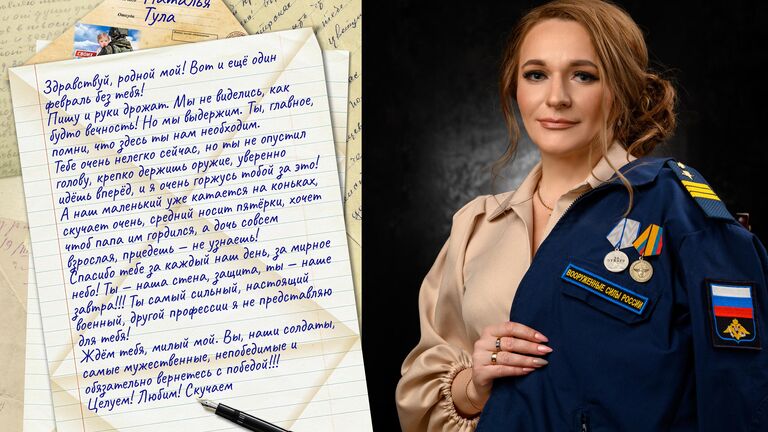 Наталья
Откуда
Тула
СВОИХ
Здравствуй, родной мой! Вот и ещё один
февраль без тебя!
Пишу и руки дрожат. Мы не виделись, как
будто вечность! Но мы выдержим. Ты, главное,
помни, что здесь ты нам необходим.
Тебе очень нелегко сейчас, но ты не опустил
голову, крепко держишь оружие, уверенно
идёшь вперёд, и я очень горжусь тобой за это!
А наш маленький уже катается на коньках,
скучает очень, средний носит пятёрки, хочет
чтоб папа им гордился, а дочь совсем
взрослая, приедешь – не узнаешь!
Спасибо тебе за каждый наш день, за мирное
небо! Ты – наша стена, защита, ты – наше
завтра!!! Ты самый сильный, настоящий
военный, другой профессии я не представляю
для тебя!
Ждём тебя, милый мой. Вы, наши солдаты,
самые мужественные, непобедимые и
обязательно вернетесь с победой!!!
Целуем! Любим! Скучаем
ВООРУЖЕННЫЕ СИЛЫ РОССИИ